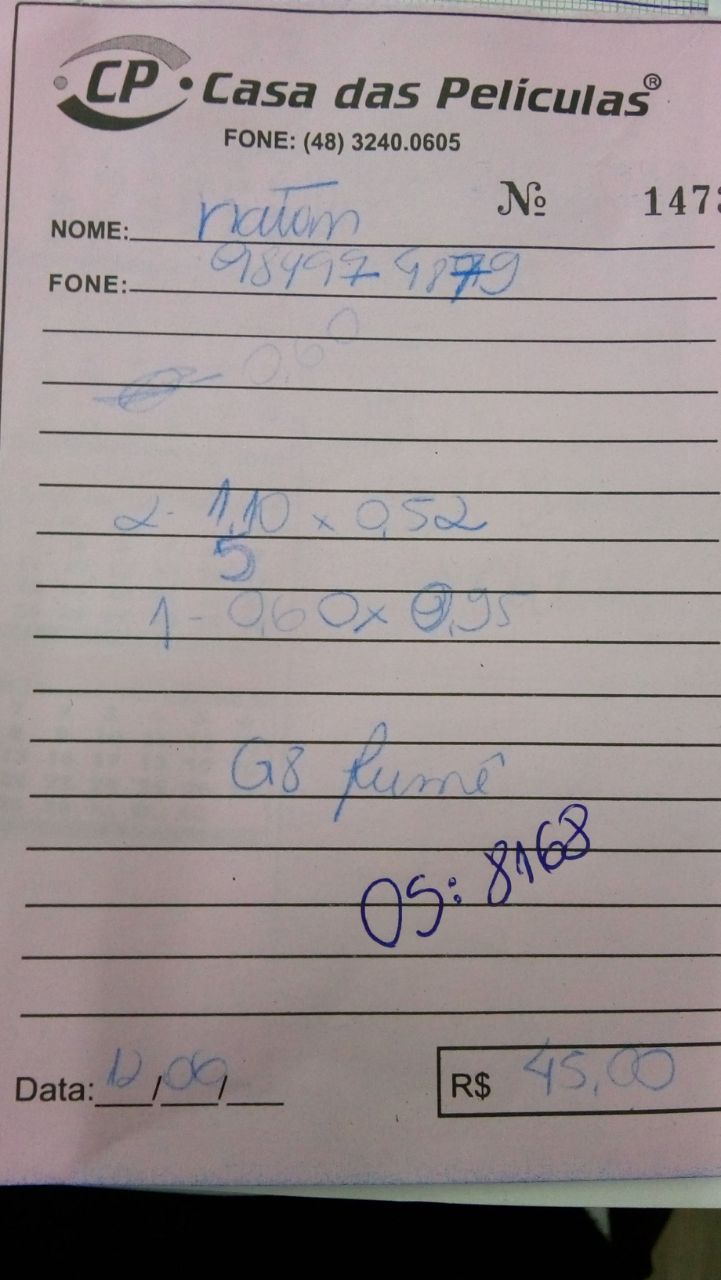 CP • Casa das Películas®
FONE: (48) 3240.0605
Nº 1473
NOME: natan
FONE: 98497 4879
0,60
2- 1,10 x 0,52
5
1- 0,60 x 0,95
G8 fumê
OS: 8168
Data: 12/09/
R$ 45,00